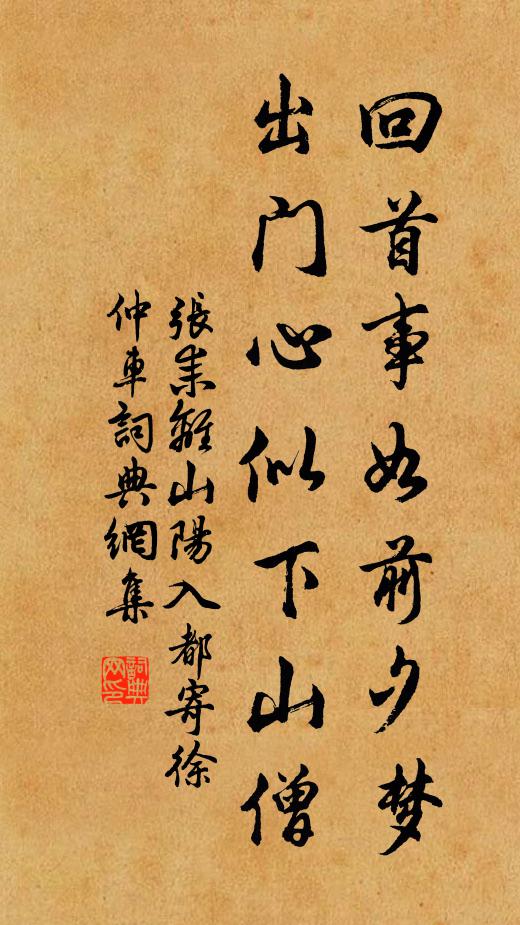 回首事如前夕梦
出门心似下山僧
張耒離山陽入都寄徐
仲車詞典網集
詞典网印